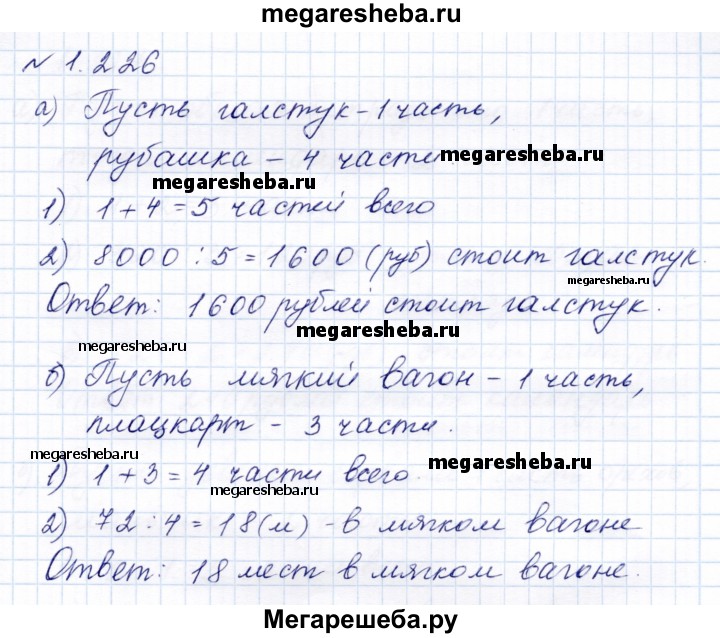 megaresheba.ru
№ 1.226
а) Пусть галстук - 1 часть,
рубашка - 4 части. megaresheba.ru
megaresheba.ru
1) 1 + 4 = 5 частей всего
2) 8000 : 5 = 1600 (руб) стоит галстук.
megaresheba.ru
Ответ: 1600 рублей стоит галстук.
megaresheba.ru
megaresheba.ru
б) Пусть мягкий вагон - 1 часть,
плацкарт - 3 части.
megaresheba.ru
megaresheba.ru
1) 1 + 3 = 4 части всего.
megaresheba.ru
2) 72 : 4 = 18 (м) - в мягком вагоне
Ответ: 18 мест в мягком вагоне.
Мегарешеба.ру